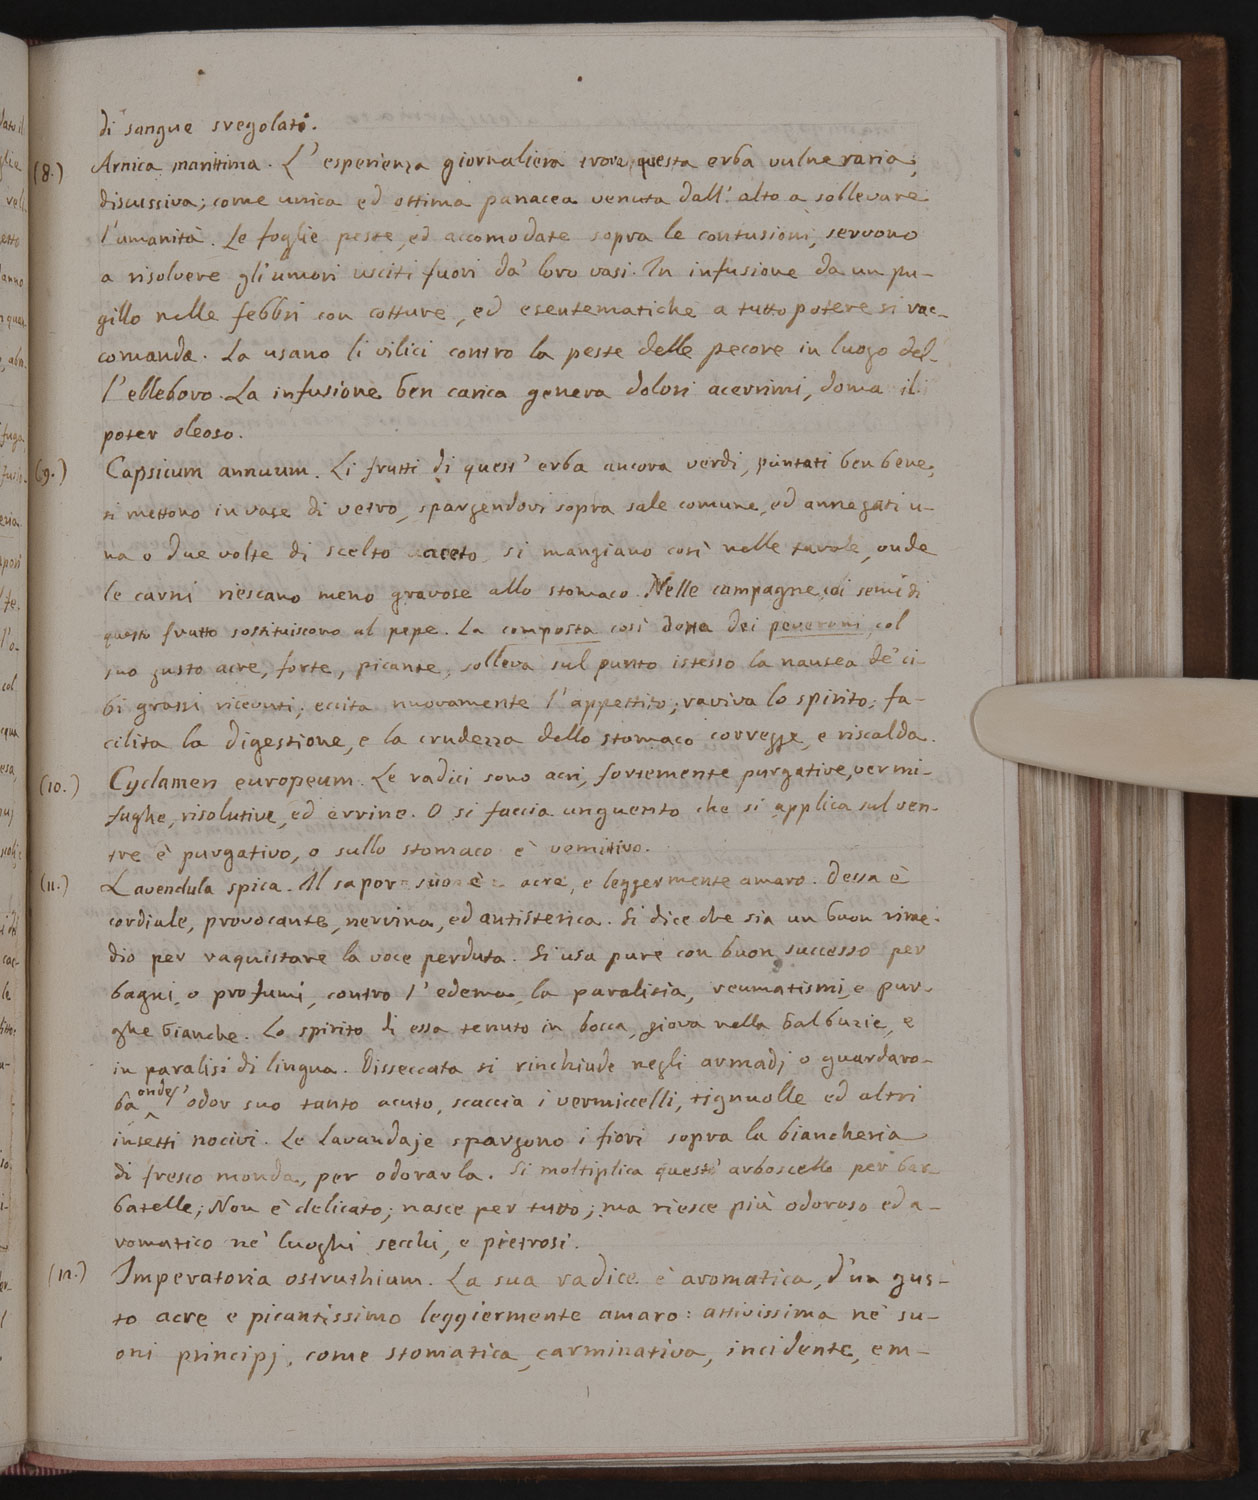 di sangue svegolati.
(8.) Arnica marittima. L' esperienza giornaliera trova questa erba vulneraria,
discussiva; come unica ed ottima panacea venuta dall' alto a sollevare
l'umanità. Le foglie peste, ed accomodate sopra le contusioni, servono
a risolvere gli umori usciti fuori da' loro vasi. In infusione da un pu-
gillo nelle febbri con cotture, ed esentematiche a tutto potere si rac-
comanda. La usano li vilici contro la peste delle pecore in luogo del-
l'elleboro. La infusione ben carica genera dolori acerrimi, doma il
poter oleoso.
(9.) Capsicum annuum. Li frutti di quest' erba ancora verdi, puntati ben bene,
si mettono in vase di vetro, spargendovi sopra sale comune, ed annegati u-
na o due volte di scelto aceto, si mangiano così nelle tavole, onde
le carni riescano meno gravose allo stomaco. Nelle campagne, coi semi di
questo frutto sostituiscono al pepe. La composta così detta dei peveroni, col
suo gusto acre, forte, picante, solleva sul punto istesso la nausea de' ci-
bi grassi ricevuti; eccita nuovamente l' appettito; raviva lo spirito; fa-
cilita la digestione, e la crudezza dello stomaco corregge, e riscalda.
(10.) Cyclamen europeum. Le radici sono acri, fortemente purgative, vermi-
fughe, risolutive, ed errine. O si faccia unguento che si applica sul ven-
tre è purgativo, o sullo stomaco è vemitivo.
(11.) Lavendula spica. Il sapor suo è acre, e leggermente amaro. Dessa è
cordiale, provocante, nervina, ed antisterica. Si dice che sia un buon rime-
dio per raquistare la voce perduta. Si usa pure con buon successo per
bagni, o profumi, contro l' edema, la paralisia, reumatismi, e pur-
ghe bianche. Lo spirito di essa tenuto in bocca, giova nella balbuzie, e
in paralisi di lingua. Disseccata si rinchiude negli armadj o guardaro-
ba ond' odor suo tanto acuto, scaccia i vermiccelli, tignuolle ed altri
insetti nocivi. Le Lavandaje spargono i fiori sopra la biancheria
di fresco monda, per odorarla. Si moltiplica quest' arboscello per bar
batelle; Non è delicato; nasce per tutto; ma riesce più odoroso ed a-
romatico ne' luoghi secchi, e pietrosi.
(12.) Imperatoria ostruthium. La sua radice è aromatica, d'un gus-
to acre e picantissimo leggiermente amaro: attivissima ne' su-
oni principj, come stomatica, carminativa, incidente, em-